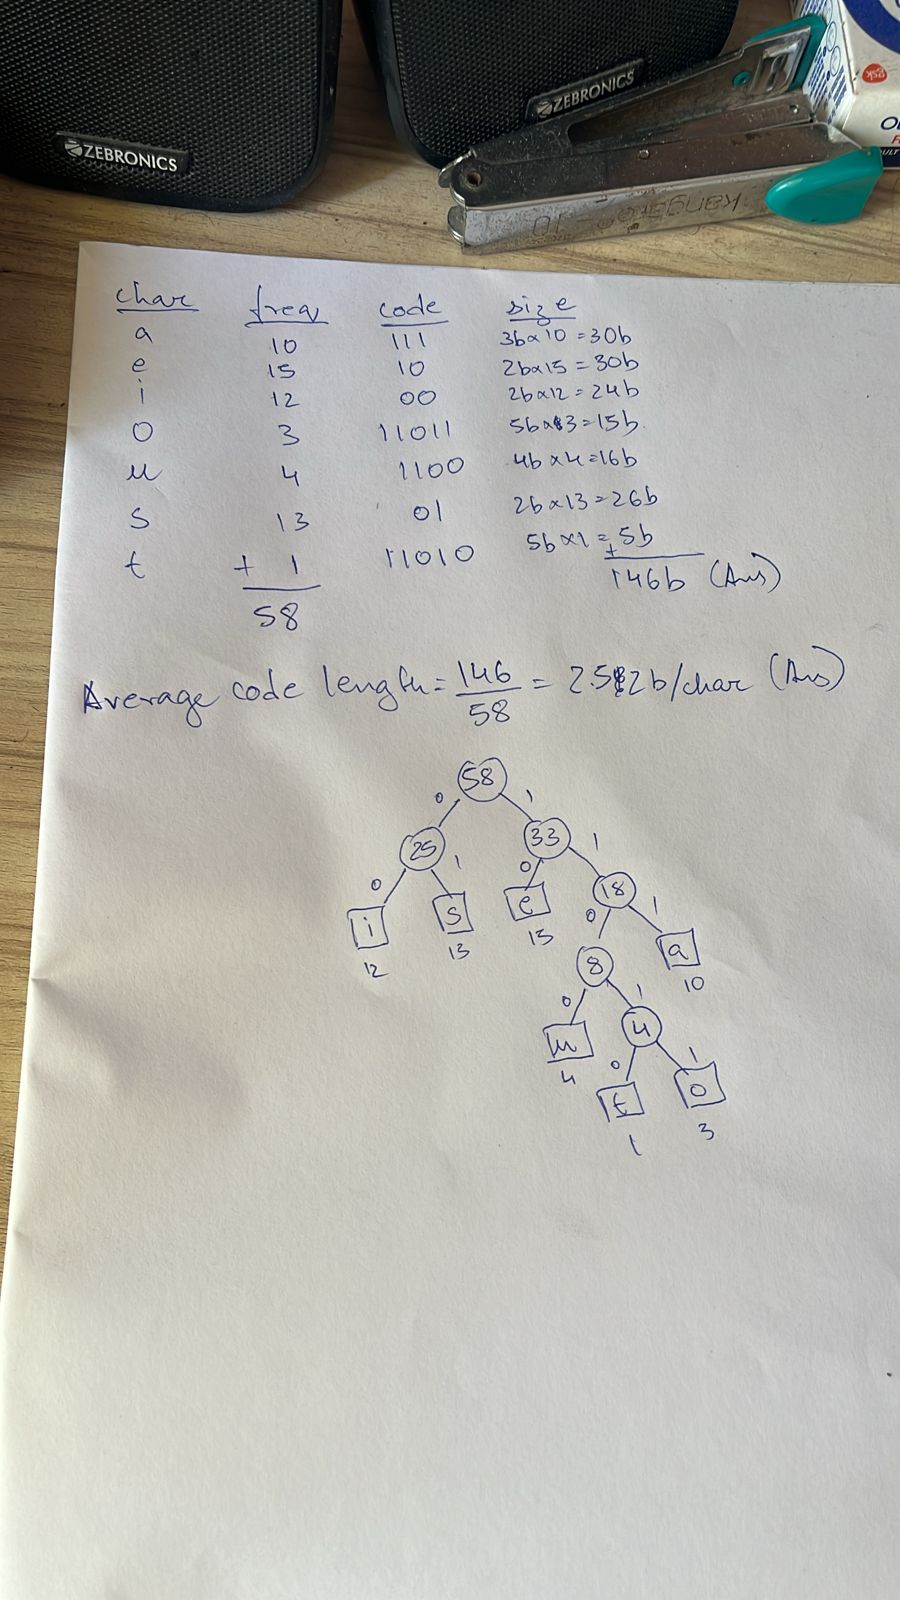 ZEBRONICS
ZEBRONICS
Kangaro - 10
char freq code size
a 10 111 3b x 10 = 30b
e 15 10 2b x 15 = 30b
i 12 00 2b x 12 = 24b
o 3 11011 5b x 3 = 15b
u 4 1100 4b x 4 = 16b
s 13 01 2b x 13 = 26b
t + 1 11010 5b x 1 = 5b
58 + 146b (Ans)
Average code length = 146/58 = 2.52b/char (Ans)
58
0 1
25 33
0 1 0 1
i s e 18
12 13 15 0 1
8 a
10
0 1
u 4
4 0 1
t o
1 3